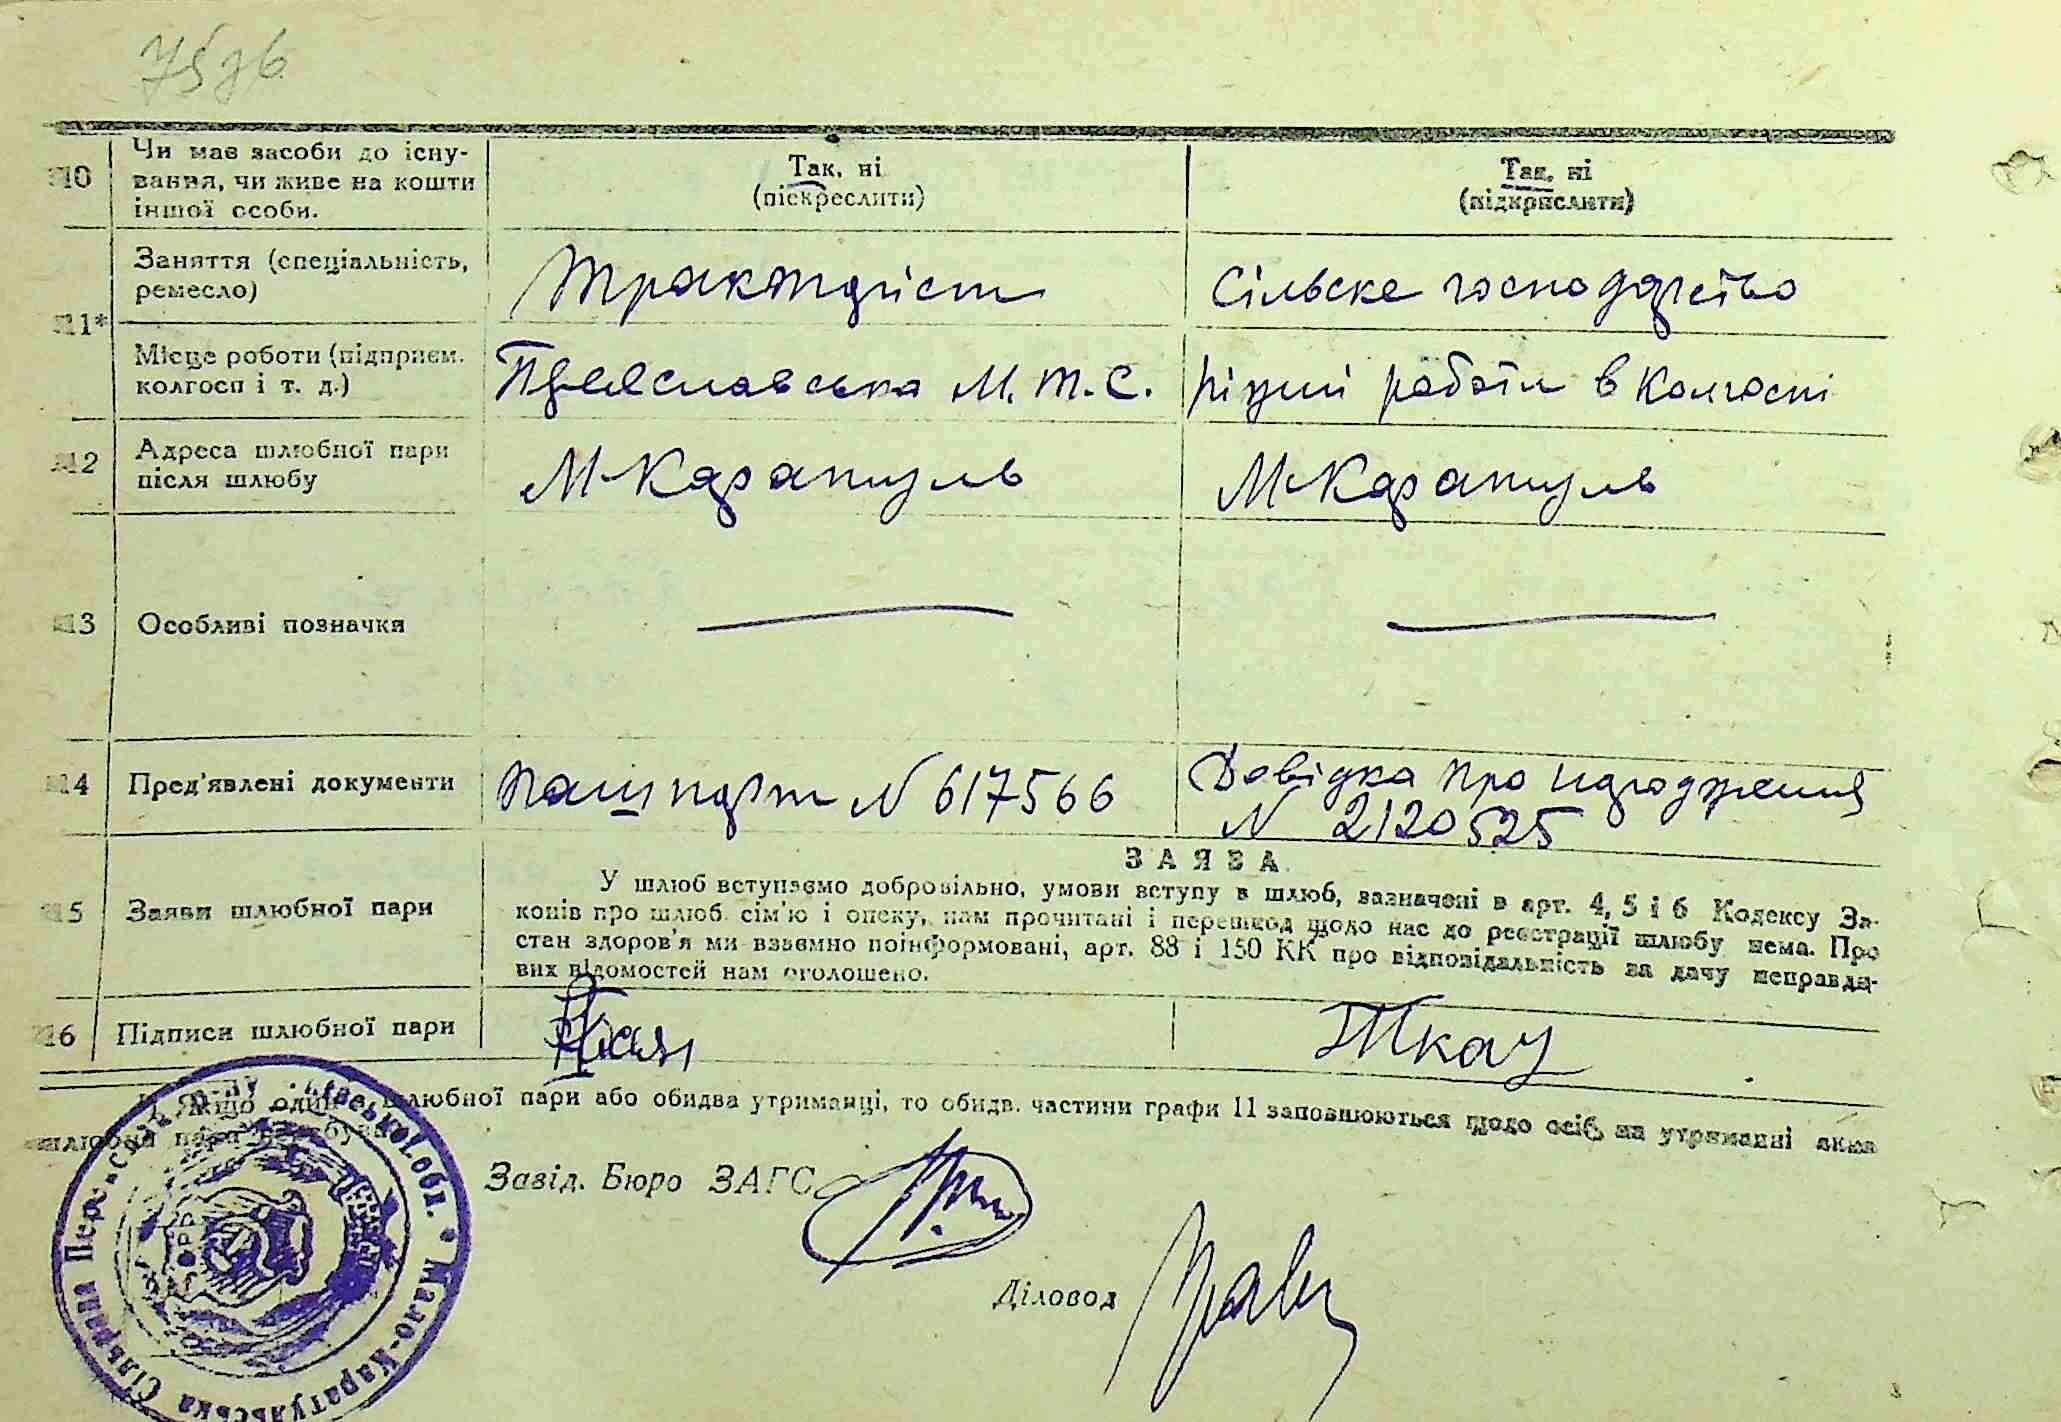 75 зв
10 Чи має засоби до існу-
вання, чи живе на кошти
іншої особи.
Так, ні
(піскреслити)
Так, ні
(підкрислити)
11*
Заняття (спеціальність,
ремесло)
Тракторист
Сільске господарство
Місце роботи (підприєм.
колгосп і т. д.)
М.Т.С.
Різиі роботи в колгоспі
12 Адреса шлюбної пари
після шлюбу
М-Каратуль
М-Каратуль
13 Особливі позначки
14 Пред'явлені документи
Пашпорт N 617566
Довідка про народження
N 2120525
ЗАЯВА
15 Заяви шлюбної пари
У шлюб вступаємо добровільно, умови вступу в шлюб, зазначені в арт. 4, 5 і 6 Кодексу За-
конів про шлюб. сім'ю і опеку, нам прочитані і перешкод щодо нас до реєстрації шлюбу нема. Про
стан здоров'я ми взаємно поінформовані, арт. 88 і 150 КК про відповідальність за дачу неправди-
вих відомостей нам оголошено.
16 Підписи шлюбної пари
Ткач
Якщо один з шлюбної пари або обидва утриманці, то обидв. частини графи 11 заповнюються щодо осіб, на утриманні яких
шлюбна пара
Завід. Бюро ЗАГС
Діловод
Мало-Каратульська Сільрада Обл.